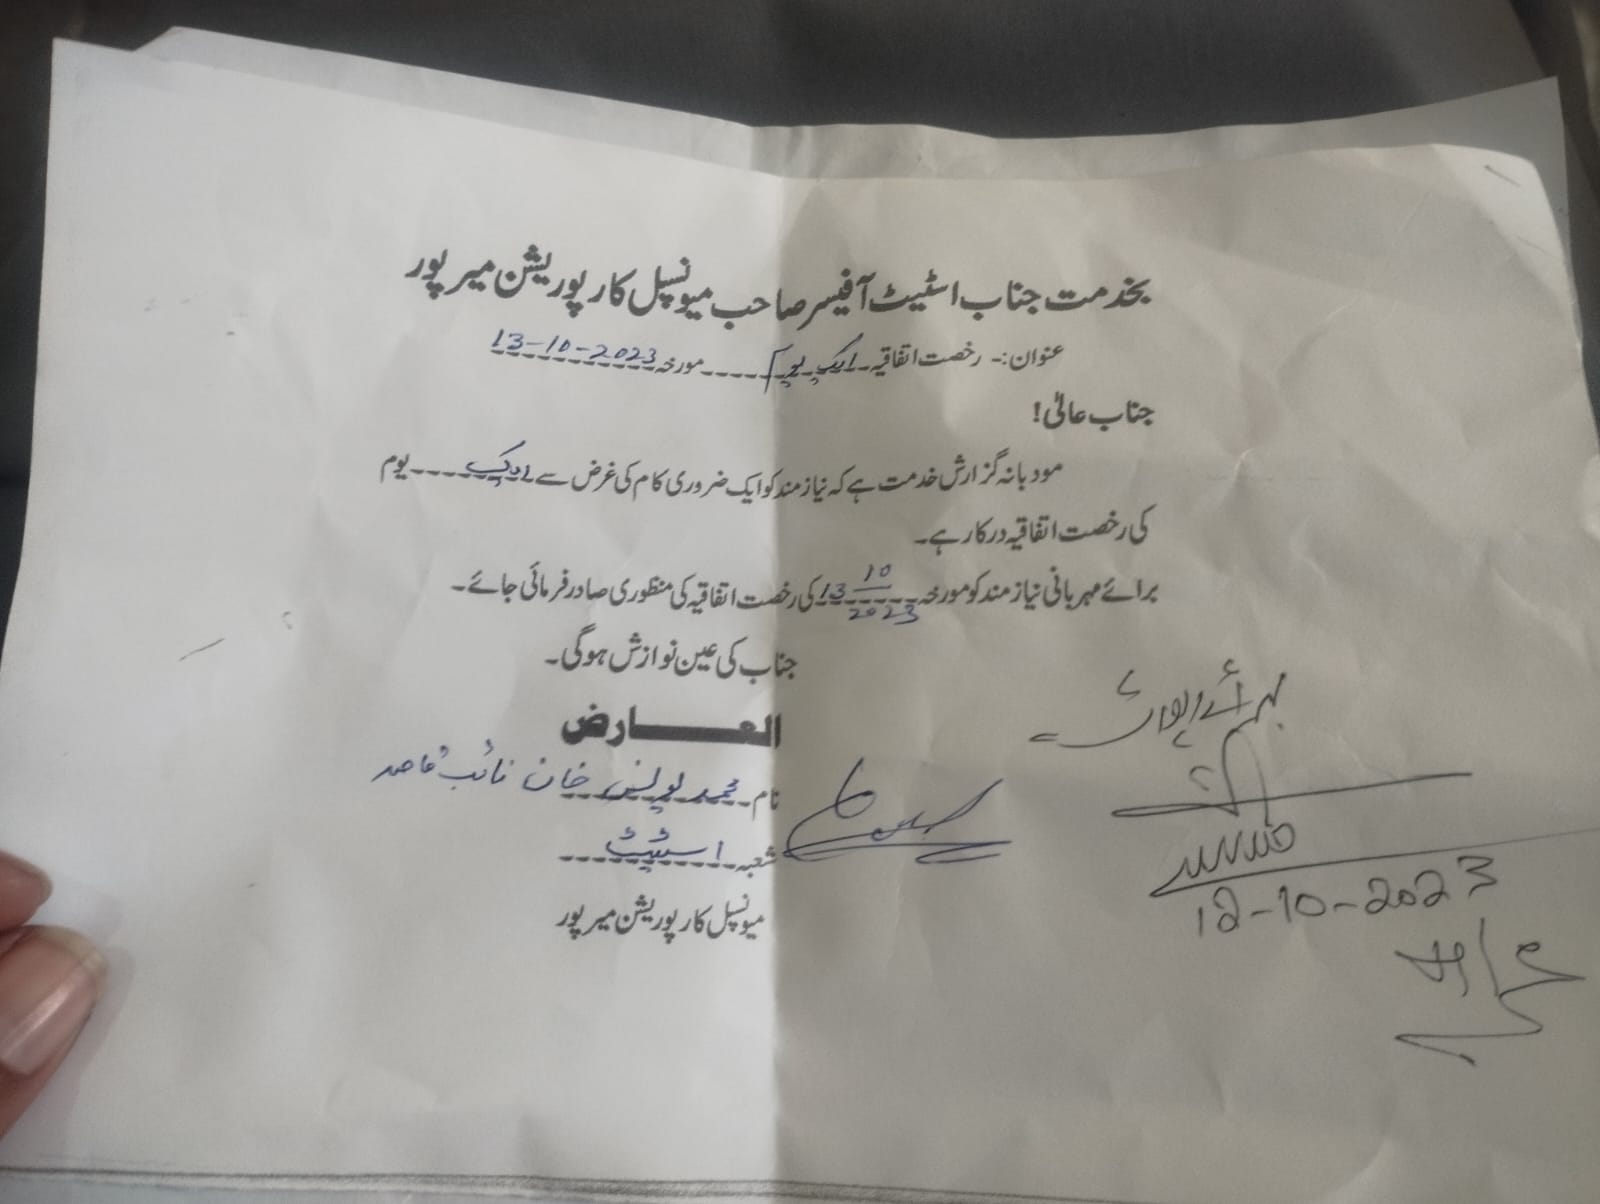 بخدمت جناب اسٹیٹ آفیسر صاحب میونسپل کارپوریشن میرپور
عنوان:- رخصت اتفاقیہ ایک یوم مورخہ 13-10-2023
جناب عالیٰ!
مودبانہ گزارش خدمت ہے کہ نیاز مند کو ایک ضروری کام کی غرض سے ایک یوم
کی رخصت اتفاقیہ درکار ہے۔
برائے مہربانی نیاز مند کو مورخہ 13-10-2023 کی رخصت اتفاقیہ کی منظوری صادر فرمائی جائے۔
جناب کی عین نوازش ہوگی۔
العارض
نام محمد یونس خان نائب قاصد
شعبہ اسٹیٹ
میونسپل کارپوریشن میرپور
12-10-2023